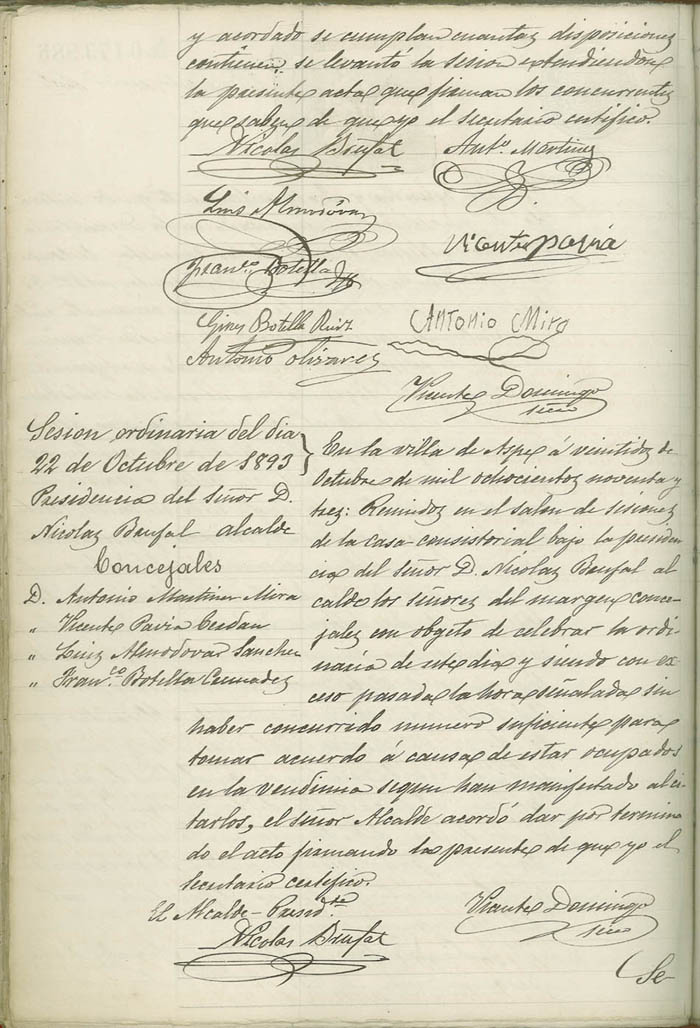 y acordado se cumplan cuantas disposiciones
contienen se levantó la sesion extendiendose
la presente acta que firman los concurrentes
que saben de que yo el secretario certifico.
Nicolas Brufal Antº. Martinez
Luis Almodóvar
Vicente pavia
Franco. Botella
Gines Botella Ruiz ANTONIO Mira
Antonio Olizares
Vicente Domingo
Srio
Sesion ordinaria del dia
22 de Octubre de 1893
Presidencia del Señor D.
Nicolas Brufal alcalde
Concejales
D. Antonio Martinez Mira
" Vicente Pavia Cerdan
" Luiz Almodovar Sanchez
" Fran.co Botella Cremadez
En la villa de Aspe á veintidos de
Octubre de mil ochocientos noventa y
trez: Reunidos en el salon de sesiones
de la casa consistorial bajo la presiden
cia del señor D. Nicolas Brufal al
calde los señores del margen conce-
jales con obgeto de celebrar la ordi
naria de este dia y siendo con ex
ceso pasada la hora señalada sin
haber concurrido numero suficiente para
tomar acuerdo á causa de estar ocupados
en la vendimia segun han manifestado al ci-
tarlos, el señor Alcalde acordó dar por termina
do el acto firmando la presente de que yo el
secretario certifico.
El Alcalde-Presidte
Nicolas Brufal
Vicente Domingo
Srio
Se-